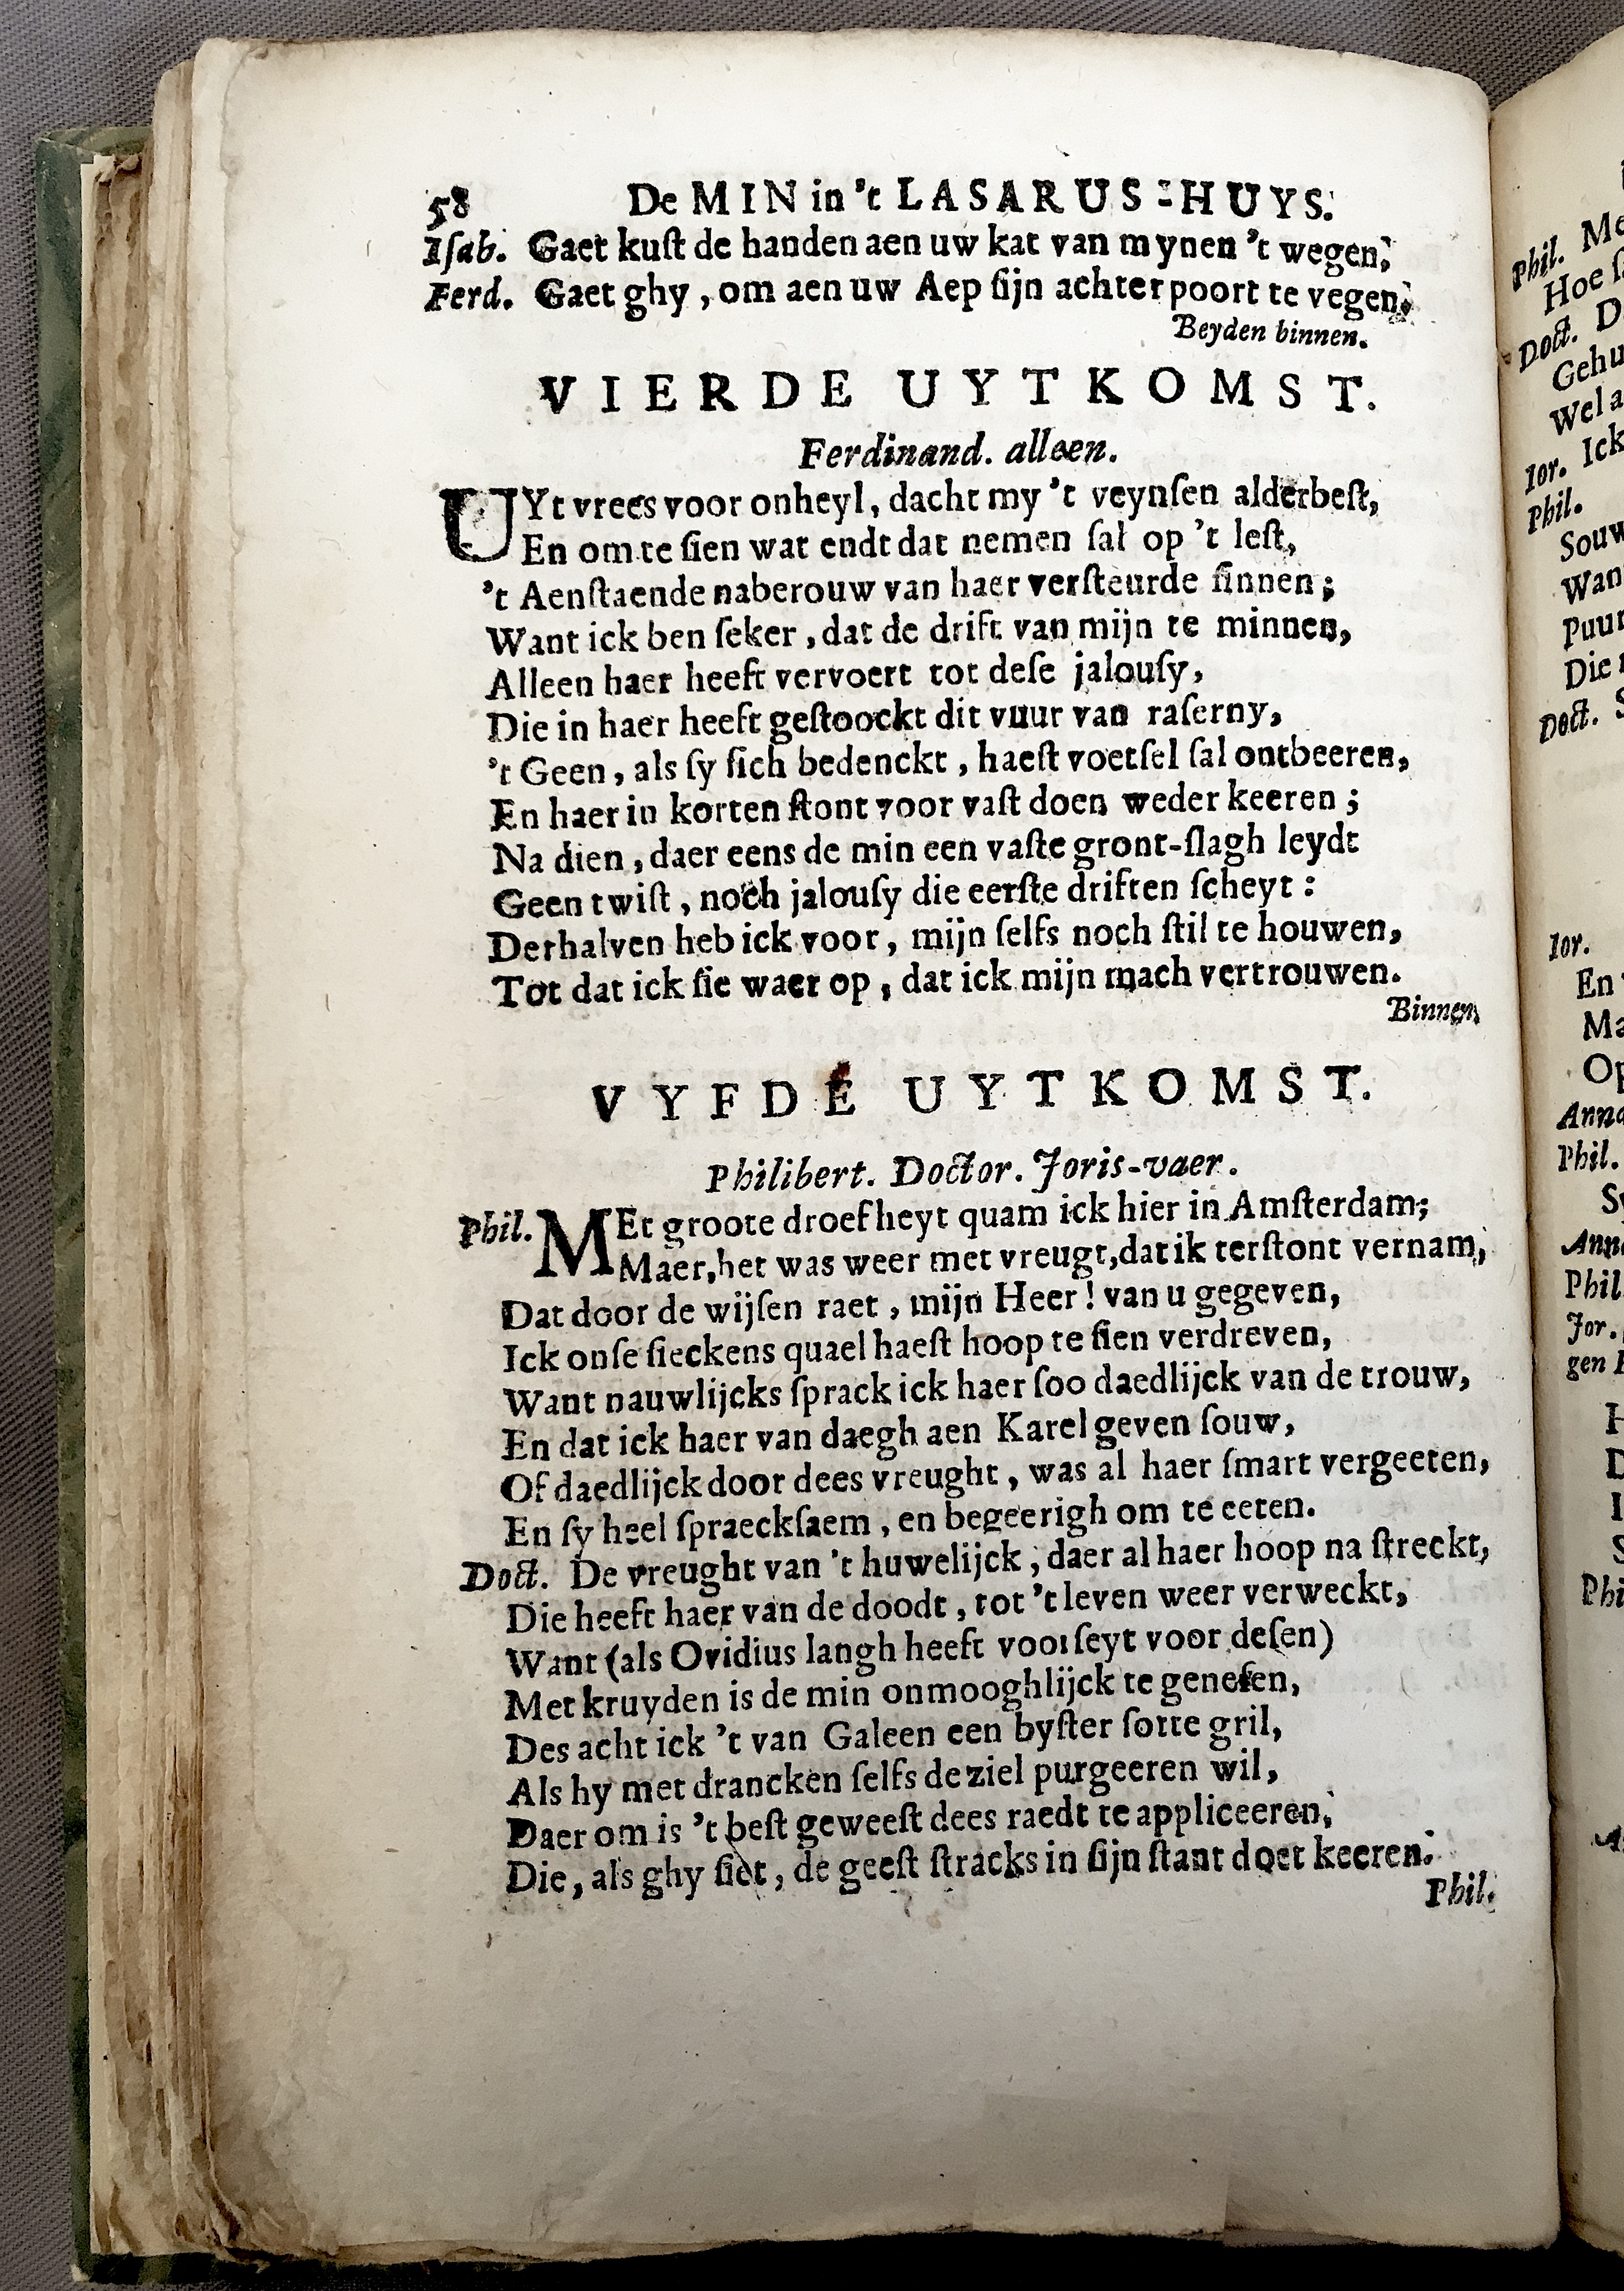 58 De MIN in 't LASARUS-HUYS.
Iſab. Gaet kuſt de handen aen uw kat van mynen 't wegen,
Ferd. Gaet ghy, om aen uw Aep ſijn achterpoort te vegen,
Beyden binnen.
VIERDE UYTKOMST.
Ferdinand. alleen.
UYt vrees voor onheyl, dacht my 't veynſen alderbeſt,
En om te ſien wat endt dat nemen ſal op 't leſt,
't Aenſtaende naberouw van haer verſteurde ſinnen;
Want ick ben ſeker, dat de drift van mijn te minnen,
Alleen haer heeft vervoert tot deſe jalouſy,
Die in haer heeft geſtoockt dit vuur van raſerny,
't Geen, als ſy ſich bedenckt, haeſt voetſel ſal ontbeeren,
En haer in korten ſtont voor vaſt doen weder keeren;
Na dien, daer eens de min een vaſte gront-ſlagh leydt
Geen twiſt, noch jalouſy die eerſte driften ſcheyt:
Derhalven heb ick voor, mijn ſelfs noch ſtil te houwen,
Tot dat ick ſie waer op, dat ick mijn mach vertrouwen.
Binnen.
VYFDE UYTKOMST.
Philibert. Doctor. Joris-vaer.
Phil. MEt groote droefheyt quam ick hier in Amſterdam;
Maer, het was weer met vreugt, dat ik terſtont vernam,
Dat door de wijſen raet, mijn Heer! van u gegeven,
Ick onſe ſieckens quael haeſt hoop te ſien verdreven,
Want nauwlijcks ſprack ick haer ſoo daedlijck van de trouw,
En dat ick haer van daegh aen Karel geven ſouw,
Of daedlijck door dees vreught, was al haer ſmart vergeeten,
En ſy heel ſpraeckſaem, en begeerigh om te eeten.
Doct. De vreught van 't huwelijck, daer al haer hoop na ſtreckt,
Die heeft haer van de doodt, tot 't leven weer verweckt,
Want (als Ovidius langh heeft voorſeyt voor deſen)
Met kruyden is de min onmooghlijck te geneſen,
Des acht ick 't van Galeen een byſter ſotte gril,
Als hy met drancken ſelfs de ziel purgeeren wil,
Daer om is 't beſt geweeſt dees raedt te appliceeren,
Die, als ghy ſiet, de geeſt ſtracks in ſijn ſtant doet keeren.
Phil.